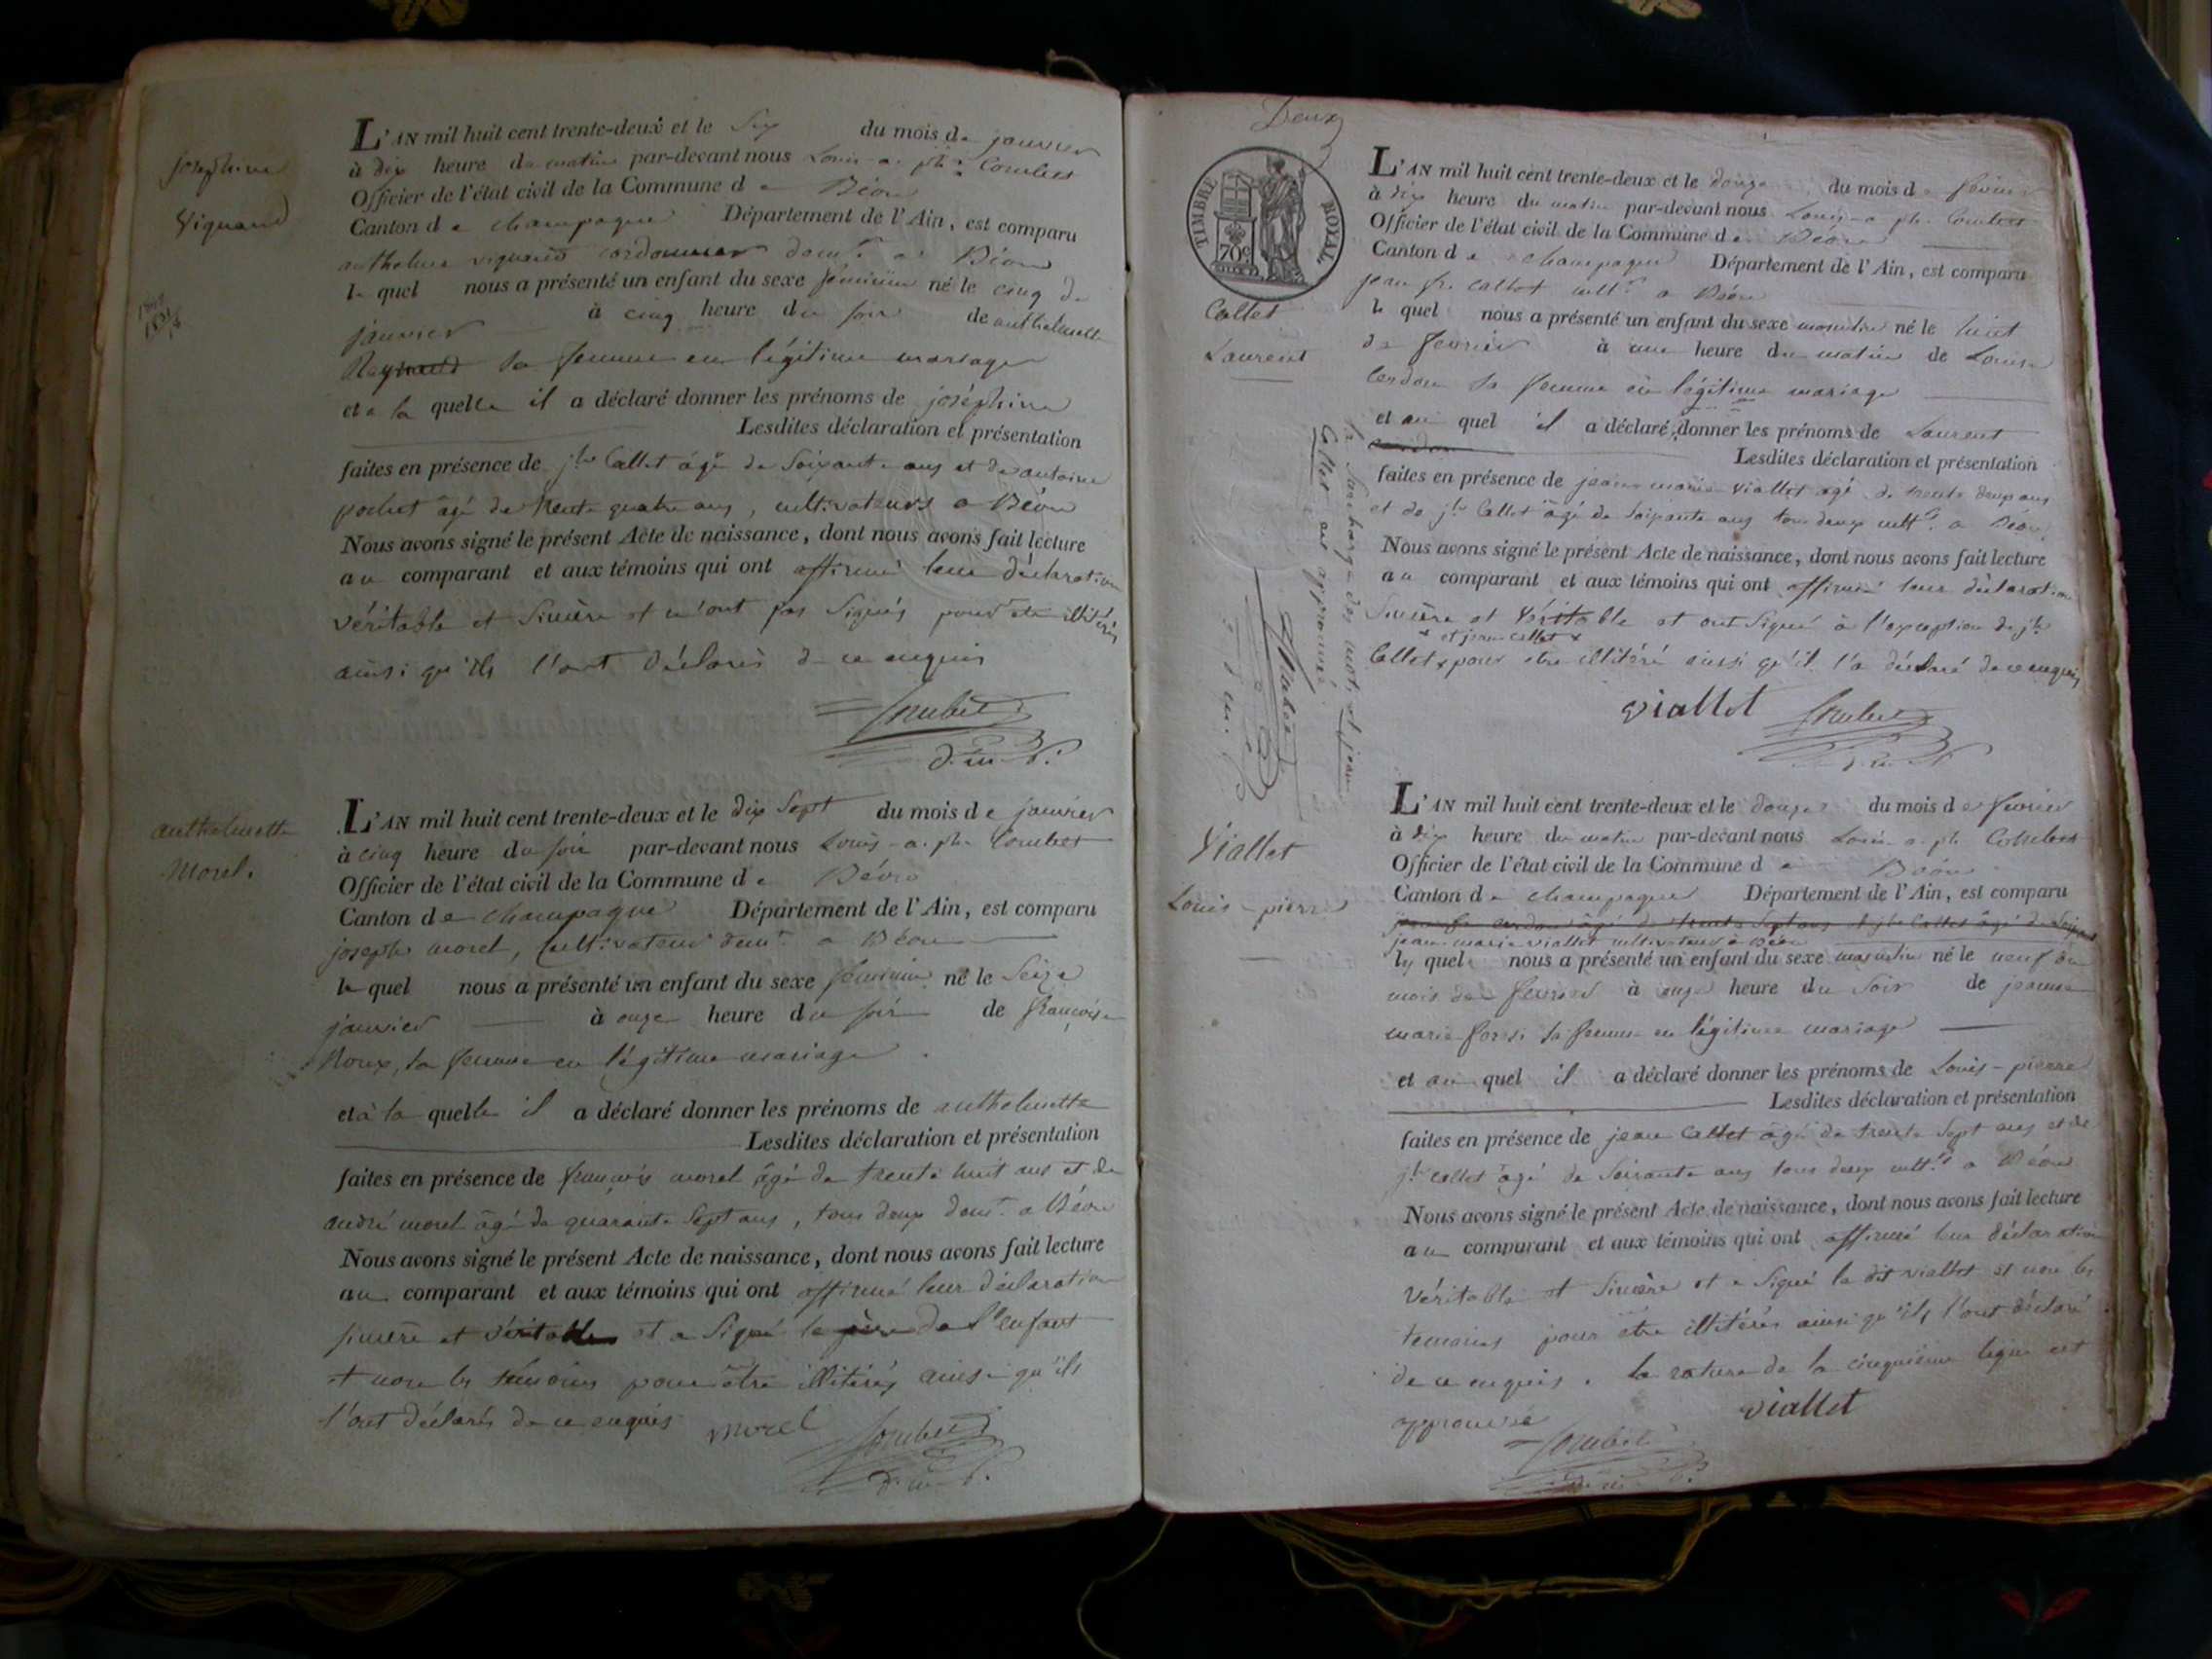 Joséphine
Vignand
L'AN mil huit cent trente-deux et le Six du mois de janvier
à dix heure du matin par-devant nous Louis-a. ph. Combet
Officier de l'état civil de la Commune de Béon
Canton de champagne Département de l'Ain, est comparu
anthelme vignand cordonnier domt. a Béon
le quel nous a présenté un enfant du sexe féminin né le cinq de
janvier à cinq heure du soir de anthelmette
Raynaud sa femme en légitime mariage
et a la quelle il a déclaré donner les prénoms de joséphine
Lesdites déclaration et présentation
faites en présence de jh Callet âgé de Soixante ans et de antoine
pochet âgé de trente quatre ans, cultivateurs a Béon
Nous avons signé le présent Acte de naissance, dont nous avons fait lecture
au comparant et aux témoins qui ont affirmé leur déclaration
véritable et Sincère et n'ont pas Signés pour être illitérés
ainsi qu'ils l'ont déclarés de ce enquis
Combet
d. m. p.
anthelmette
Morel.
L'AN mil huit cent trente-deux et le dix Sept du mois de janvier
à cinq heure du soir par-devant nous Louis-a. ph. Combet
Officier de l'état civil de la Commune de Béon
Canton de champagne Département de l'Ain, est comparu
joseph morel, Cultivateur domt. a Béon
le quel nous a présenté un enfant du sexe féminin né le Seize
janvier à onze heure du soir de françoise
Roux, sa femme en légitime mariage
et à la quelle il a déclaré donner les prénoms de anthelmette
Lesdites déclaration et présentation
faites en présence de françois morel âgé de trente huit ans et de
andré morel âgé de quarante Sept ans, tous deux domt. a Béon
Nous avons signé le présent Acte de naissance, dont nous avons fait lecture
au comparant et aux témoins qui ont affirmé leur déclaration
sincère et véritable et a Signé le père de l'enfant
et non les témoins pour être illitérés ainsi qu'ils
l'ont déclarés de ce enquis
morel Combet
d. m. p.
Deux
TIMBRE ROYAL
70c
Callet
Laurent
L'AN mil huit cent trente-deux et le douze du mois de février
à dix heure du matin par-devant nous Louis-a ph. Combet
Officier de l'état civil de la Commune de Béon
Canton de champagne Département de l'Ain, est comparu
jean fs. callet cultr. a Béon
le quel nous a présenté un enfant du sexe masculin né le huit
de février à une heure du matin de Louise
Cerdon sa femme en légitime mariage
et au quel il a déclaré donner les prénoms de Laurent
Lesdites déclaration et présentation
faites en présence de jean-marie viallet âgé de trente deux ans
et de jh Callet âgé de Soixante ans tous deux cultrs. a Béon
Nous avons signé le présent Acte de naissance, dont nous avons fait lecture
au comparant et aux témoins qui ont affirmé leur déclaration
Sincère et Véritable et ont Signé à l'exception de jh
x et jean callet x
Callet x pour être illitéré ainsi qu'il l'a déclaré de ce enquis
viallet Combet
d. m. p.
La Surcharge des mots et jean
Callet est approuvé
Combet
d. m. p.
Viallet
Louis-pierre
L'AN mil huit cent trente-deux et le douze du mois de février
à dix heure du matin par-devant nous Louis a. ph. Combet
Officier de l'état civil de la Commune de Béon
Canton de champagne Département de l'Ain, est comparu
jean fs cerdon âgé de trente Sept ans et jh Callet âgé de Soixante
jean-marie viallet cultivateur à Béon
le quel nous a présenté un enfant du sexe masculin né le neuf du
mois de février à onze heure du Soir de jeanne
marie sa femme en légitime mariage
et au quel il a déclaré donner les prénoms de Louis-pierre
Lesdites déclaration et présentation
faites en présence de jean Callet âgé de trente Sept ans et de
jh callet âgé de Soixante ans tous deux cultrs a Béon
Nous avons signé le présent Acte de naissance, dont nous avons fait lecture
au comparant et aux témoins qui ont affirmé leur déclaration
Véritable et Sincère et a Signé le dit viallet et non les
temoins pour être illitérés ainsi qu'ils l'ont déclaré
de ce enquis. la rature de la cinquième ligne est
approuvée viallet
Combet
d. m. p.